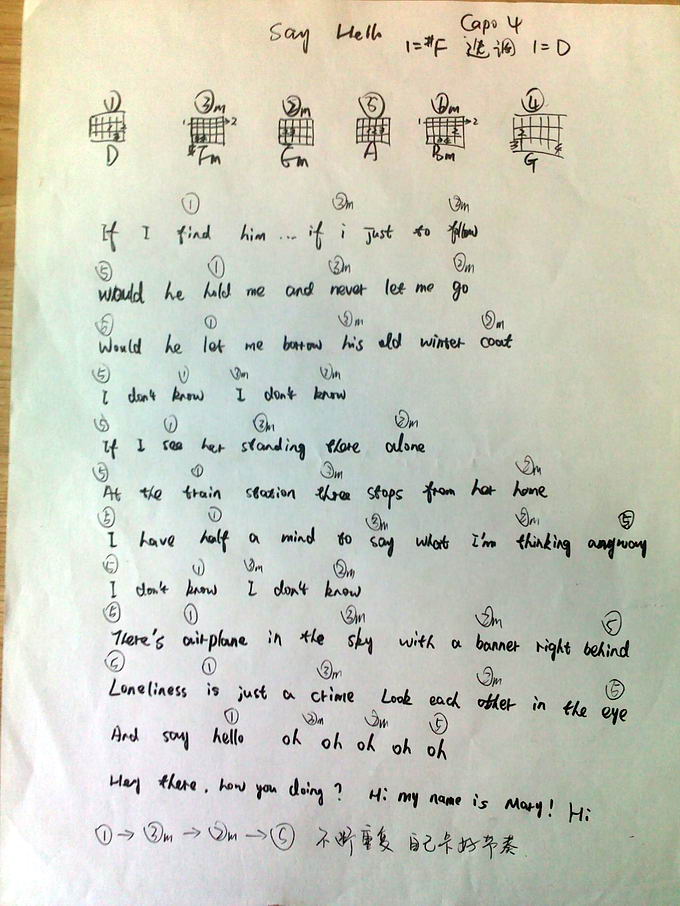 Say Hello
Capo 4
1=#F 选调 1=D
① ③m ②m ⑤ ⑥m ④
D #Fm Em A Bm G
① ③m ②m
If I find him ... if i just to follow
⑤ ① ③m ②m
Would he hold me and never let me go
⑤ ① ③m ②m
Would he let me borrow his old winter coat
⑤ ① ③m ②m
I don't know I don't know
⑤ ① ③m ②m
If I see her standing there alone
⑤ ① ③m ②m
At the train station three stops from her home
⑤ ① ③m ②m ⑤
I have half a mind to say what I'm thinking anyway
⑤ ① ③m ②m
I don't know I don't know
⑤ ① ③m ②m ⑤
There's airplane in the sky with a banner right behind
⑤ ① ③m ②m ⑤
Loneliness is just a crime Look each other in the eye
① ③m ②m ⑤
And say hello oh oh oh oh oh
Hey there, how you doing? Hi my name is Mary! Hi
①→③m→②m→⑤ 不断重复 自己卡好节奏